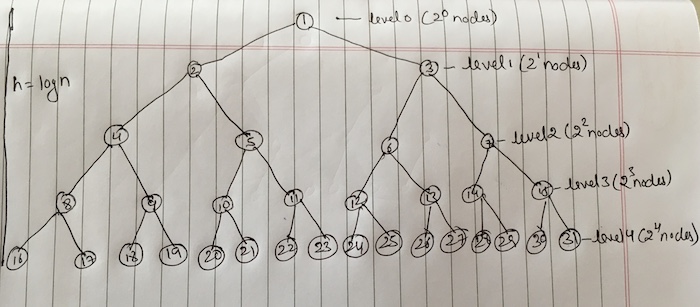 1 — level 0 (2⁰ nodes)
2 3 — level 1 (2¹ nodes)
h = log n
4 5 6 7 — level 2 (2² nodes)
8 9 10 11 12 13 14 15 — level 3 (2³ nodes)
16 17 18 19 20 21 22 23 24 25 26 27 28 29 30 31 — level 4 (2⁴ nodes)